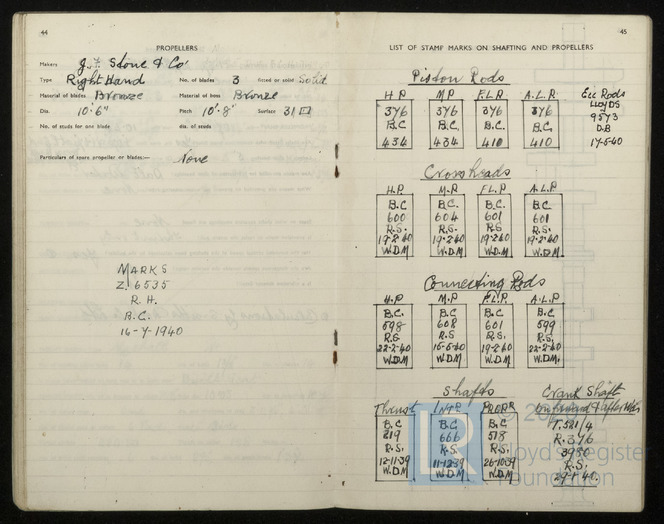 44
PROPELLERS
Makers J. Stone & Co
Type Right Hand No. of blades 3 fitted or solid Solid
Material of blades Bronze Material of boss Bronze
Dia. 10'-6" Pitch 10'-8" Surface 31
No. of studs for one blade dia. of studs
Particulars of spare propeller or blades:— None
MARKS
Z. 6535
R. H.
B.C.
16-7-1940
45
LIST OF STAMP MARKS ON SHAFTING AND PROPELLERS
Piston Rods
H.P M.P F.L.P. A.L.P. Ecc Rods
376 376 376 376 LLOYDS
B.C B.C. B.C. B.C. 9573
434 434 410 410 D.B
17-5-40
Crossheads
H.P. M.P. F.L.P. A.L.P.
B.C B.C. B.C. B.C.
600 604 601 601
R.S. R.S. R.S. R.S.
19-2-40 19-2-40 19-2-40 19-2-40
W.D.M W.D.M. W.D.M. W.D.M.
Connecting Rods
H.P M.P F.L.P. A.L.P.
B.C. B.C. B.C. B.C.
598 608 601 599
R.S R.S R.S. R.S.
22-2-40 15-5-40 19-2-40 22-2-40
W.D.M W.D.M W.D.M W.D.M.
Shafts Crank Shaft
Thrust INTR. PROPR
B.C B.C. B.C T.521/4
219 666 518 R.376
R.S. R.S. R.S. 3980
12-11-39 11-12-39 26-10-39 R.S.
W.D.M W.D.M W.D.M 29-1-40.
LR
Lloyd's Register
Foundation